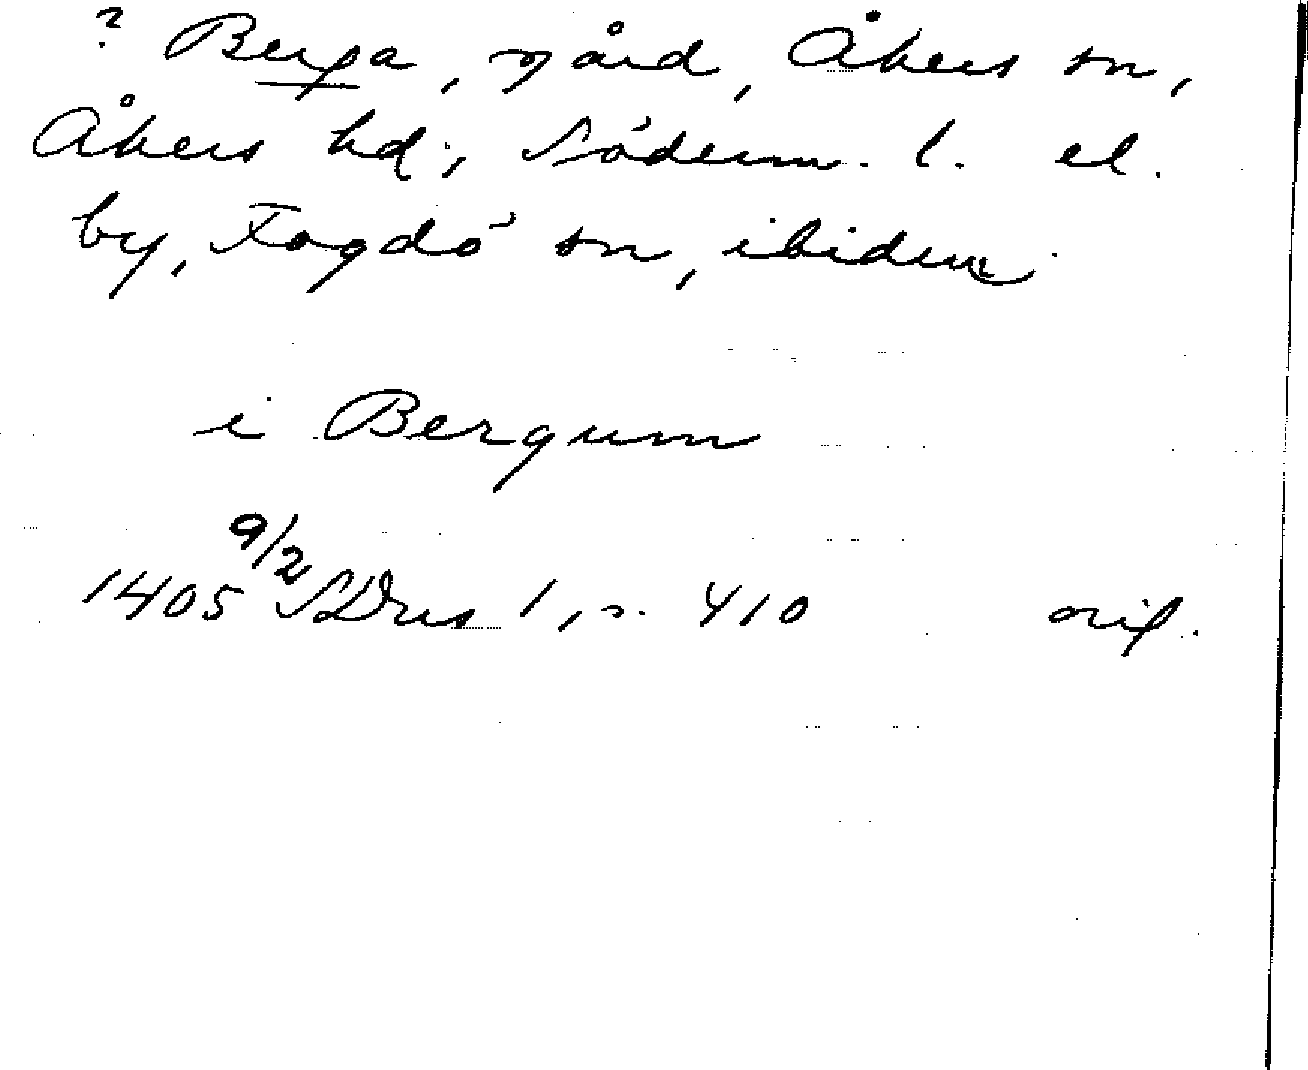 ? Berga, gård, Åkers sn,
Åkers hd, Söderm. l. el.
by, Fogdö sn, ibidem
i Bergum
1405 9/2 SDns 1, s. 410 orig.